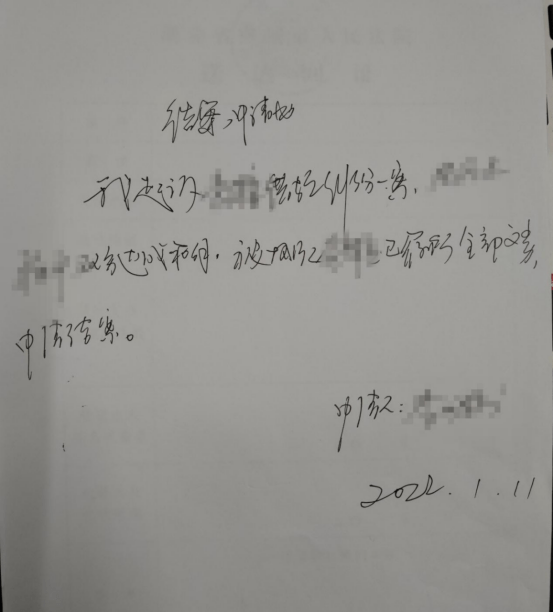 结案申请书
我起诉 纠纷一案,
已达成和解,被执行人 已履行全部义务,
申请结案。
申请人:
2022.1.11